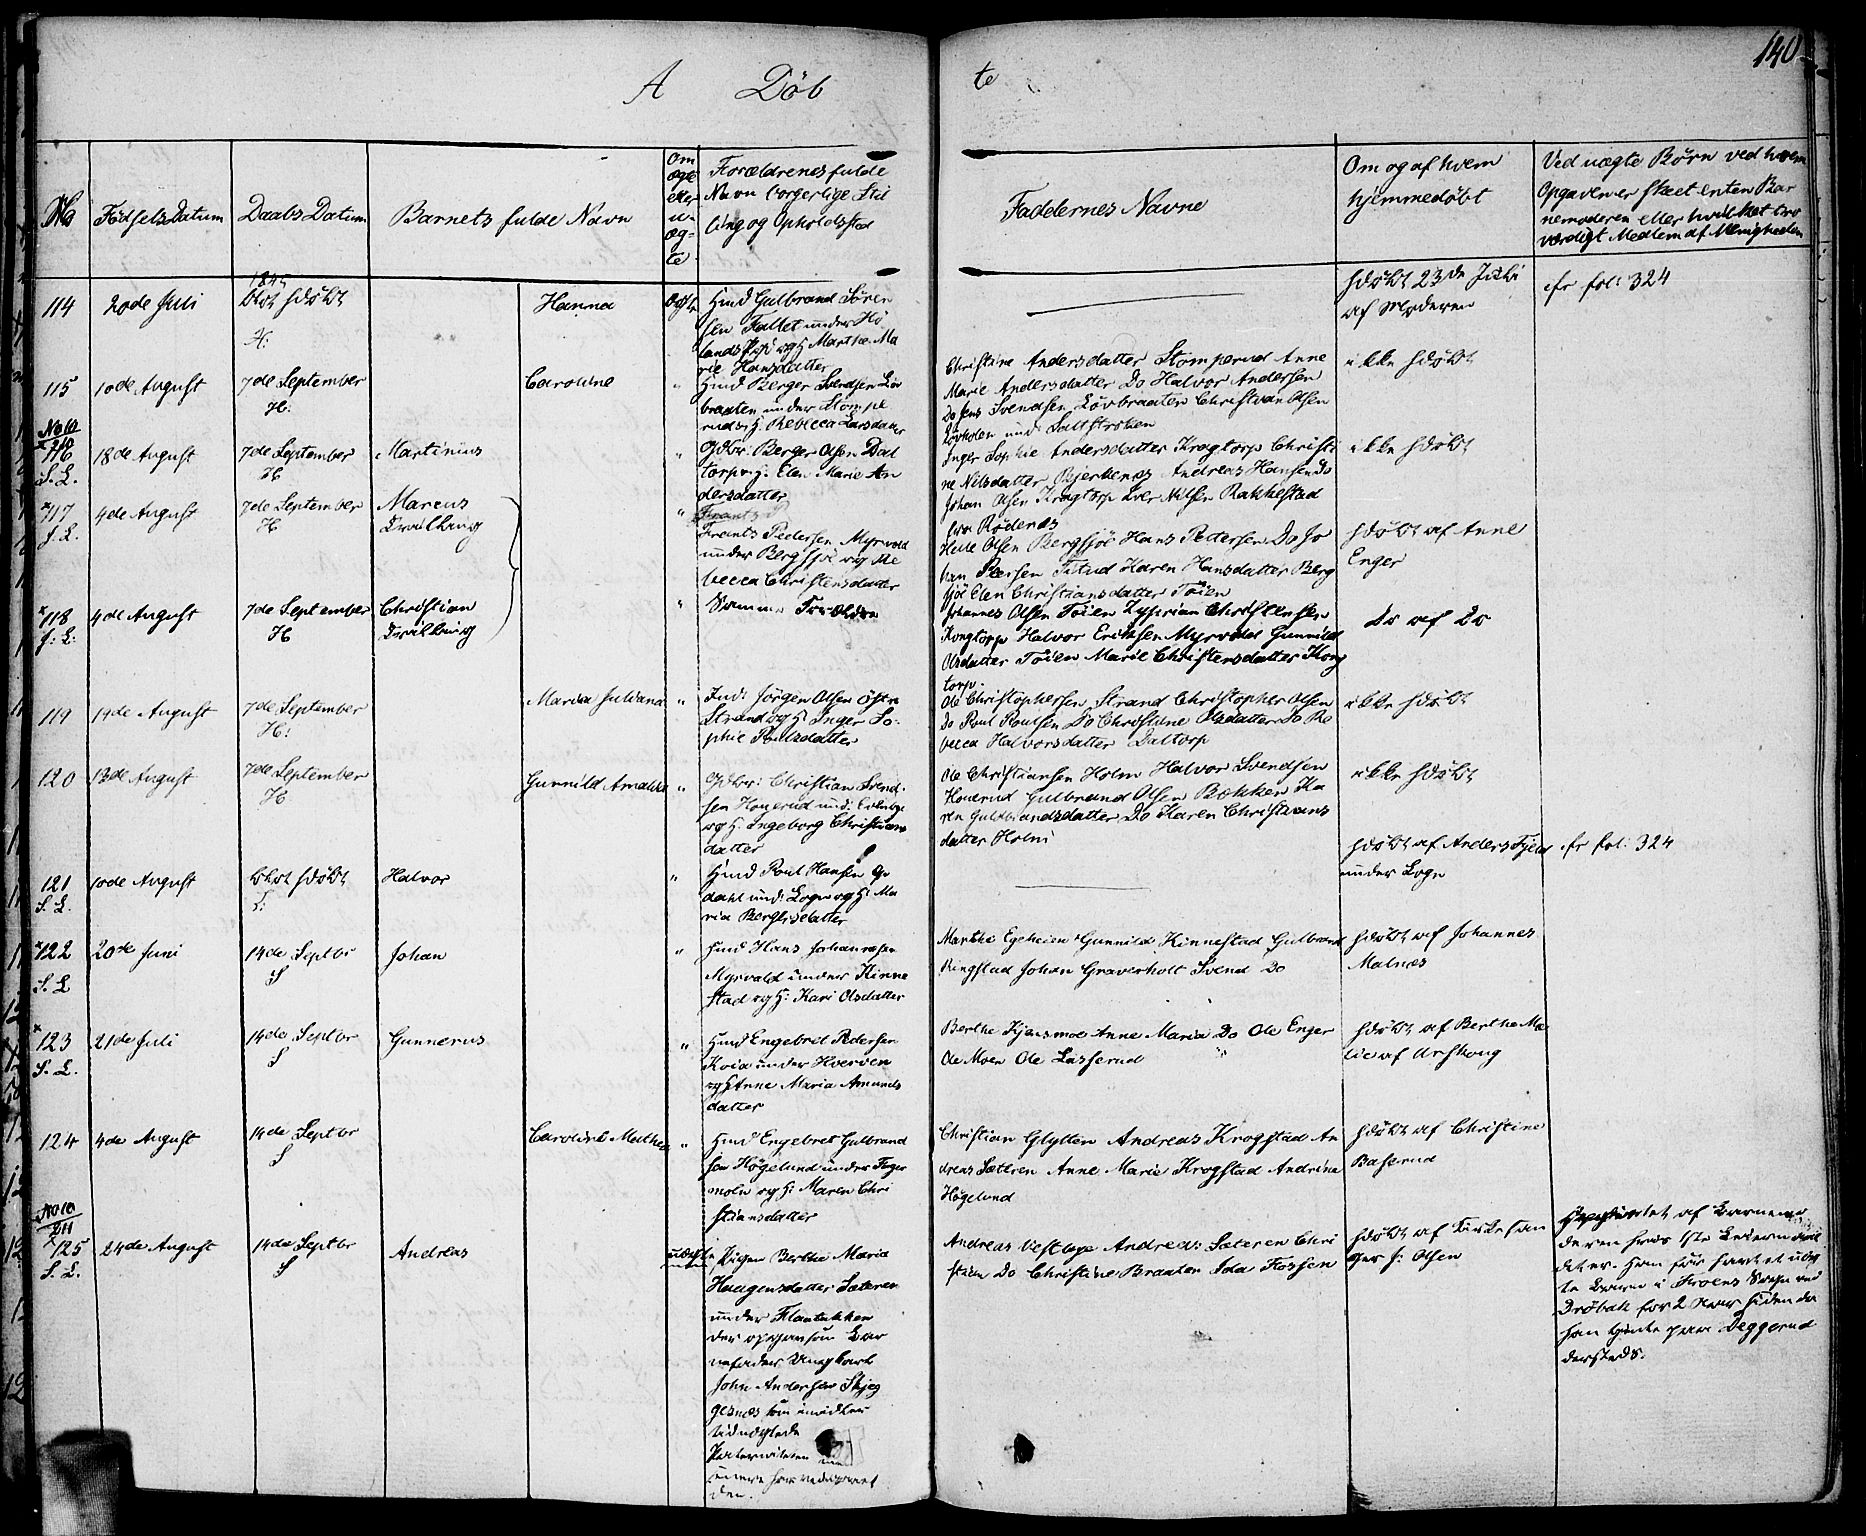 140
A Döb
te
No
Födsels Datum
Daabs Datum
Barnets fulde Navn
Om
ægte
eller
u-
æg-
te
Forældrenes fulde
Navn borgerlige Stil
ling og Opholdssted
Faddernes Navne
Om og af hvem
hjemmedöbt
Ved uægte Börn ved hvem
Opgaven er skeet enten Bar
nemoderen eller hvilket tro
værdigt Medlem af Menigheden
1845
114
20de Juli
blot hdöbt
H:
Hanna
Ægte
Huusmd Gulbrand Sören
sen Fallet under Hö
lands Pgd og H. Marthe Ma
rie Hansdatter
hdöbt 23de Juli
af Moderen
cfr fol: 324
115
10de August
7de September
H:
Caroline
"
Hmd Berger Svendsen Löv
braaten under Stompe
rud og H. Rebecca Larsdatter
Christine Andersdatter Stomperud Anne
Marie Andersdatter Do Halvor Andersen
Do Jens Svendsen Lövbraaten Christian Olsen
ikke hdöbt
No 10
210
116
S. L.
18de August
7de September
H
Martinius
"
Gdbr: Berger Olsen Dal
torp og H: Elen Marie An
dersdatter
Inger Sophie Andersdatter Krogtorp Christi
ne Nilsdatter Bjerkenes Andreas Hansen Do
Johan Olsen Krogtorp Iver Nilsen Rakkestad
fra Rödenes
ikke hdöbt
x117
S. L.
4de August
7de September
H
Marcus
Tvilling
"
Frants Pedersen Myrvold
under Bergsjöe og Re
becca Christensdatter
Helle Olsen Bergsjöe Hans Pettersen Do Jo
han Hansdatter Berg
sjöe Elen Christiansdatter Töien
hdöbt af Anne
Enger
x118
S. L.
4de August
7de September
H
Christian
Tvilling
"
Samme Forældre
Johannes Olsen Töien Zyprian Christensen
Krogtorp Halvor Eriksen Myrvold Gunnild
Olsdatter Töien Marie Christensdatter Krog
torp.
Do af Do
119
14de August
7de September
H:
Maria Juliana
"
Ind: Jörgen Olsen Östre
Strand og H Inger So-
phie Poulsdatter
Ole Christophersen Strand Christopher Olsen
Do Poul Poulsen Do Christine Olsdatter Do Re
becca Halvorsdatter Daltorp
ikke hdöbt
120
13de August
7de September
H
Gunnild Amalia
"
Gdbr: Christian Svend-
sen Honerud
og H: Ingeborg Christians
datter
Ole Christiansen Holm Halvor Svendsen
Honerud Gulbrand Olsen Bækken Ka
ren Guldbrandsdatter Do Karen Christians
datter Holm
ikke hdöbt
121
S. L.
10de August
blot hdöbt
S:
Halvor
"
Hmd Poul Hansen
und: Loge og H: Ma
ria Bergersdatter
hdöbt af Anders Fjeld
under Loge
cfr fol: 324
x122
S. L
20de Juni
14de Septbr
S
Johan
"
Hmd Hans Johannesen
Myrvold under Kinne
stad og H: Kari Olsdatter
Marthe Egeheien Gunnild Kinnestad Gulbrand
Ringstad Johan Graverholt Svend Do
hdöbt af Johannes
Malnæs
x
123
S. L.
21de Juli
14de Septbr
S
Gunnerus
"
Hmd Engebret Pedersen
Koia under Hverven
og H Anne Maria Amunds
datter
Berthe Kjensmoe Anne Maria Do Ole Enger
Ole Moen Ole Lasserud
hdöbt af Berthe Ma
rie af Urskoug
124
4de August
14de Septbr
S
Caroline Mathea
"
Hmd Engebret Gulbrand
sen Högelund under Finger
moln og H: Maren Chri
stiansdatter
Christian Glytten Andreas Krogstad An
dreas Sæteren Anne Marie Krogstad Andrine
Högelund
hdöbt af Christine
Baserud
No 10
211
x125
S. L.
24de August
14de Septbr
S
Andreas
uægte
Pigen Berthe Maria
Haagensdatter Sæteren
under Flaatakken
der opgav som Bar
nefader Ungkarl
John Andersen Skjeg
gesnæs som imidler
tid nægtede
Paterniteten
den.
Andreas Vestbye Andreas Sæteren Chri
stian Do Christine Braaten Ida Fossen
hdöbt af Kirkesan
ger J: Olsen
af Barnemo
deren hans 1ste Leiermaal
det er. Hun för havt et uæg
te Barn i Froens Sogn ved
Dröbak for 2 Aar siden da
hun tjente paa Deggerud
dersteds.